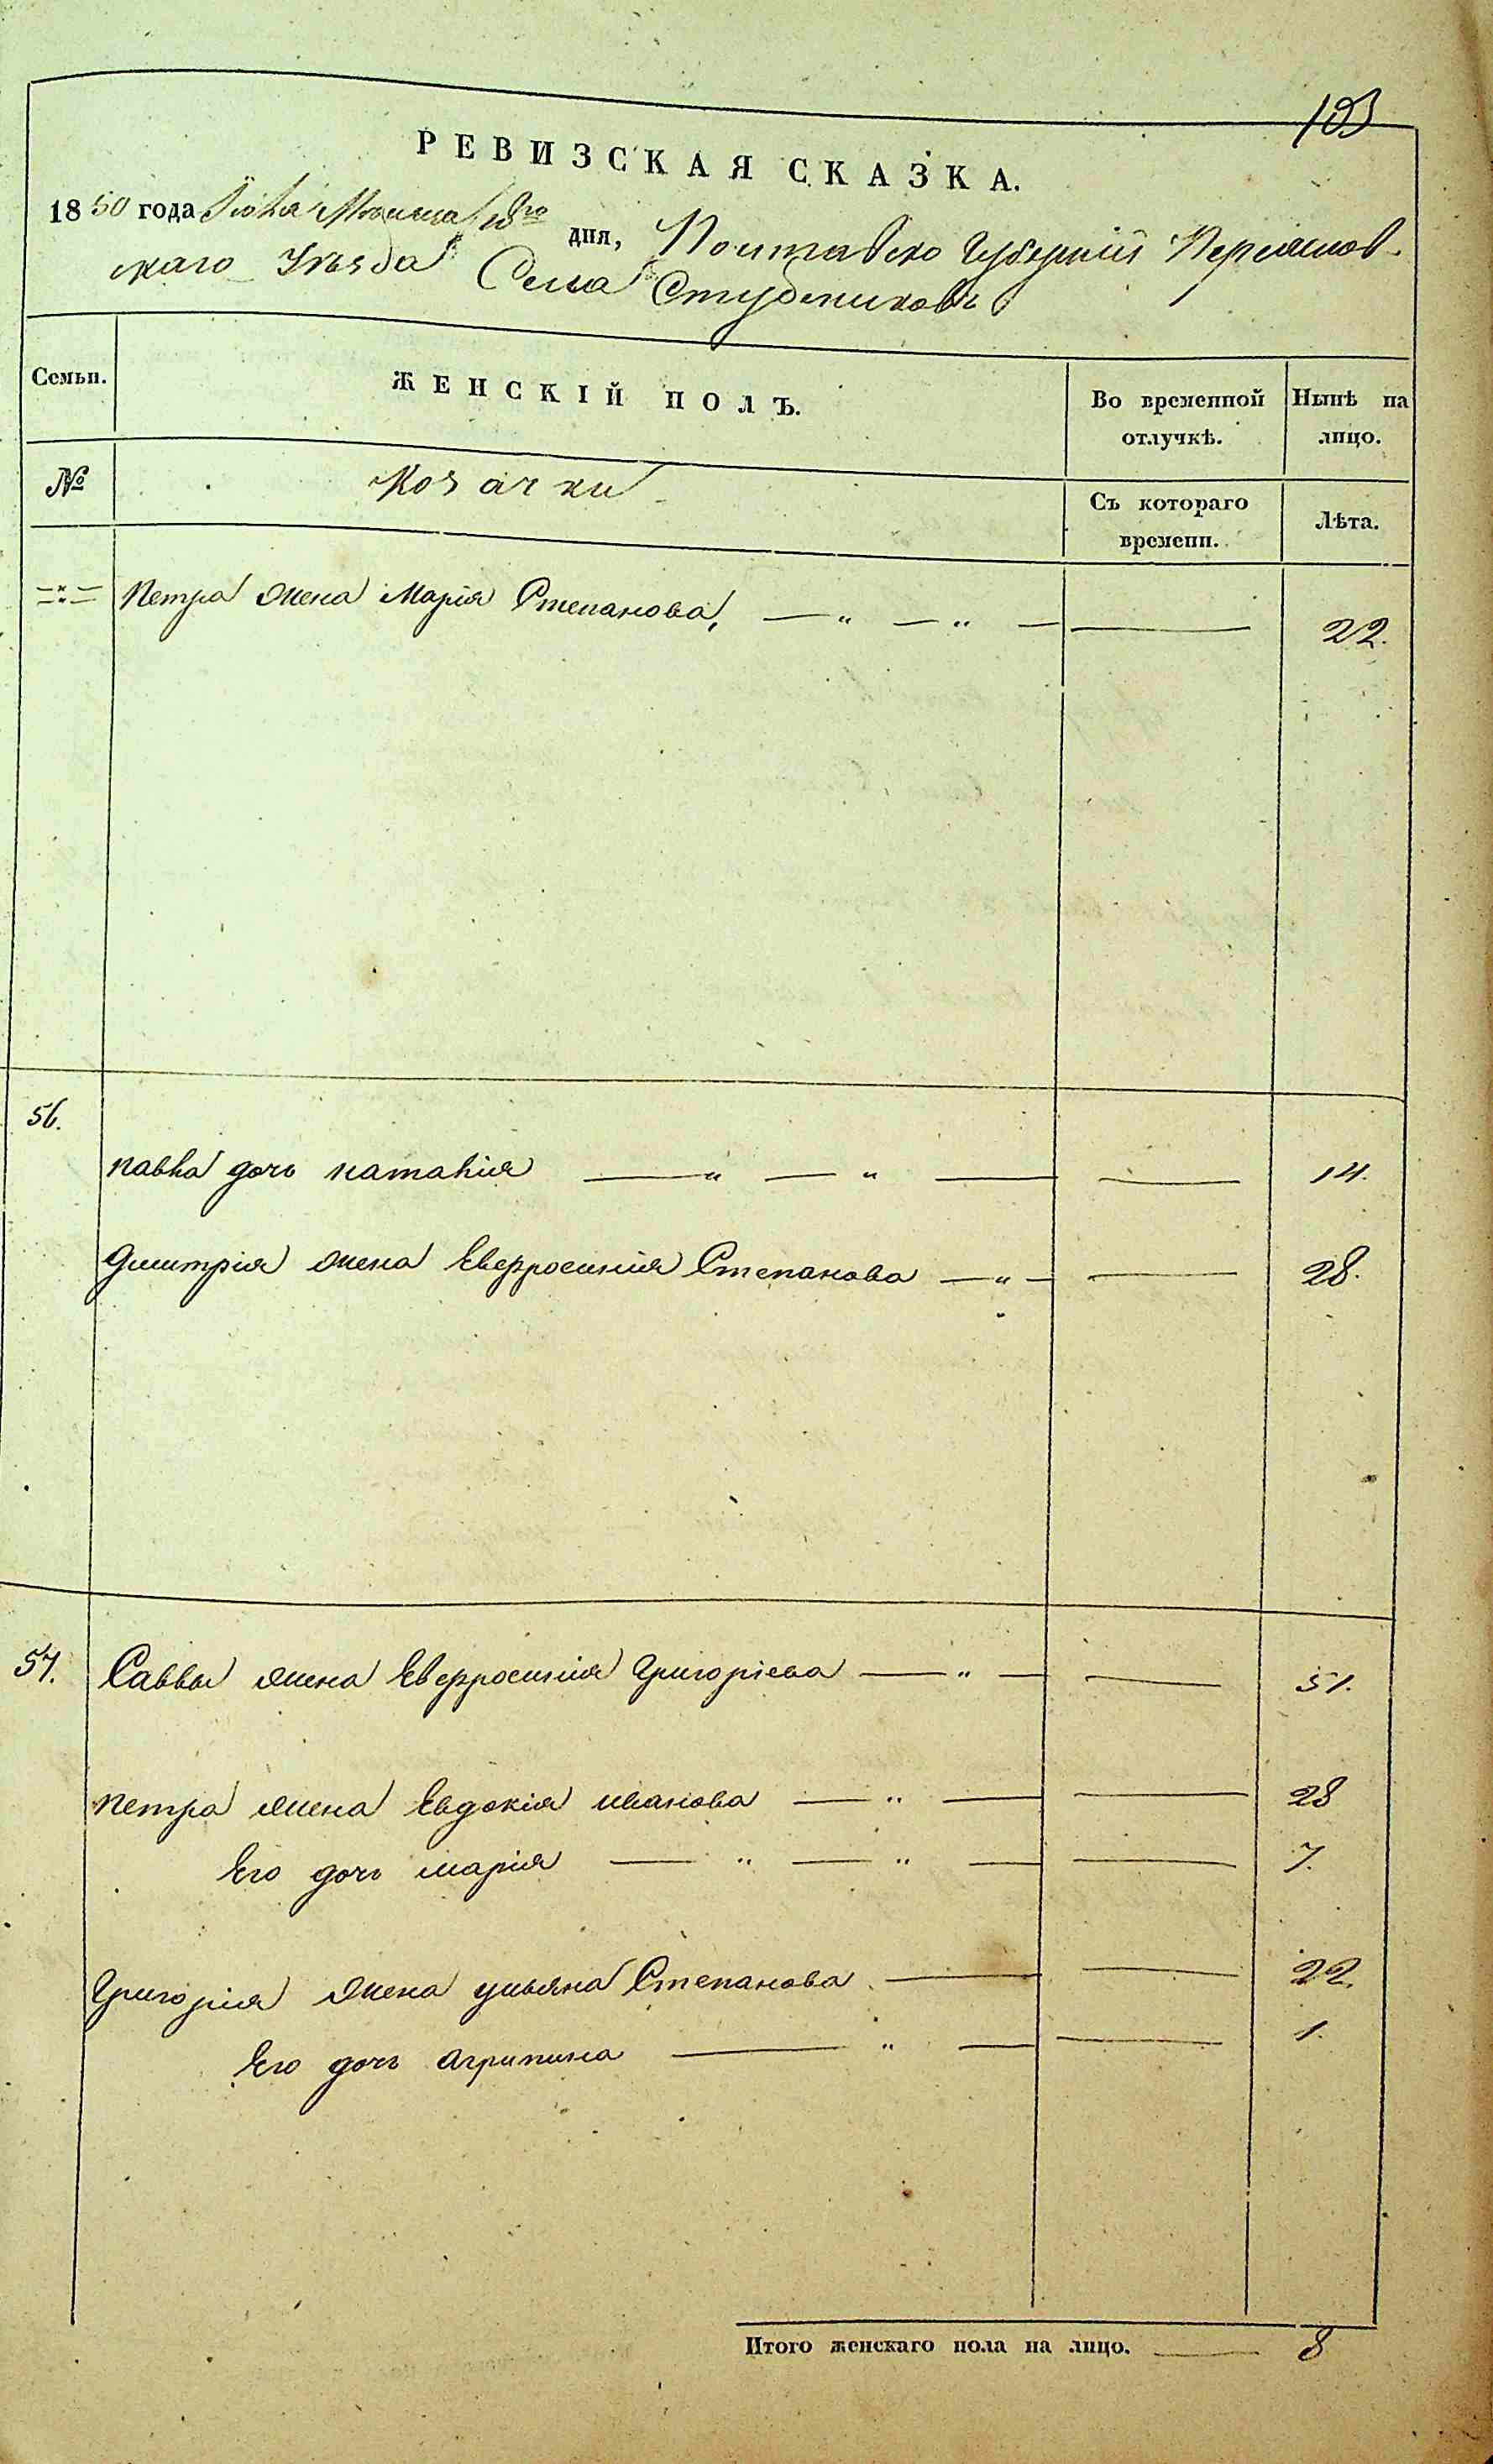 103
РЕВИЗСКАЯ СКАЗКА.
1850 года Іюля Мѣсяца 10го дня, Полтавско Губерніи Переяслов-
скаго Уѣзда Села Студениковъ
Семьи.
ЖЕНСКІЙ ПОЛЪ.
Во временной отлучкѣ.
Нынѣ на лицо.
№
Козачки
Съ котораго времени.
Лѣта.
Петра жена Марія Степанова, 22.
56.
павла дочь наталія 14.
Дмитрія жена Евфросинія Степанова 28.
57. Саввы жена Евфросинія Григоріева 51.
петра жена Евдокія иванова 28
Его дочь марія 7.
Григорія жена ульяна Степанова 22.
Его дочь агрипина 1.
Итого женскаго пола на лицо. 8